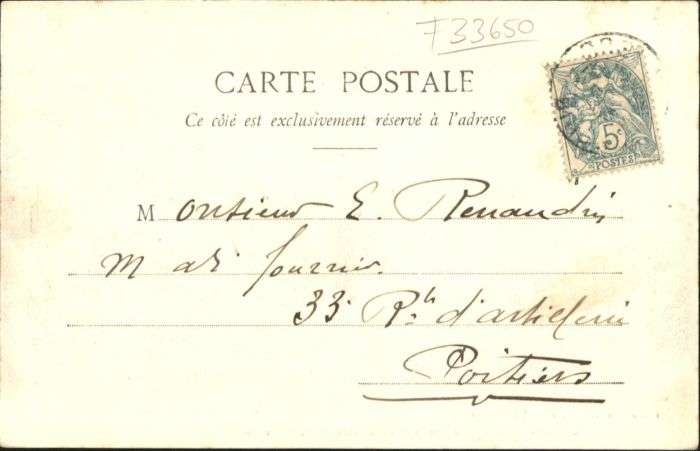 F33650
CARTE POSTALE
Ce côté est exclusivement réservé à l'adresse
5c
POSTES
Monsieur E. Renaudin
33 d'artillerie
Poitiers